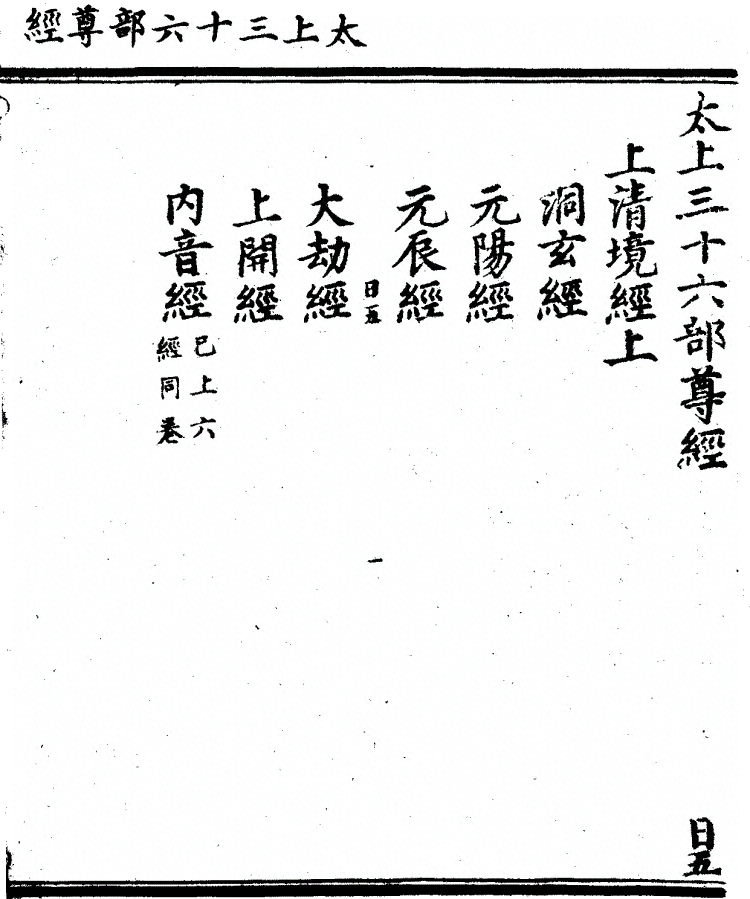 太上三十六部尊經
太上三十六部尊經
日五
上清境經上
洞玄經
元陽經
元辰經
日五
一
大劫經
上開經
内音經
已上六
經同卷